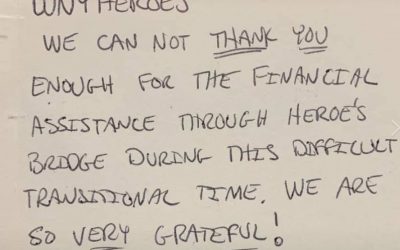 WNYHEROES
WE CAN NOT THANK YOU
ENOUGH FOR THE FINANCIAL
ASSISTANCE THROUGH HEROE'S
BRIDGE DURING THIS DIFFICULT
TRANSITIONAL TIME. WE ARE
SO VERY GRATEFUL!